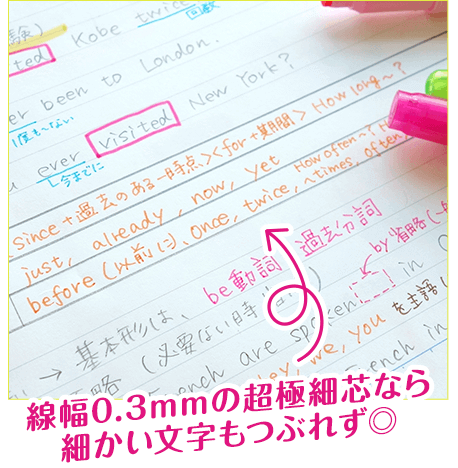 験) Kobe twice
回数
ted
er been to London.
1度も〜ない
ever visited New York?
今までに
since+過去のある一時点><for+期間> How long〜?
just, already, now, yet How often〜?
before(以前に), once, twice, 〜times, often
be動詞 過去分詞
→ 基本形は、
by省略
(必要ない時
略 French are spoken in
we, you を主語
French in
線幅0.3mmの超極細芯なら
細かい文字もつぶれず◎